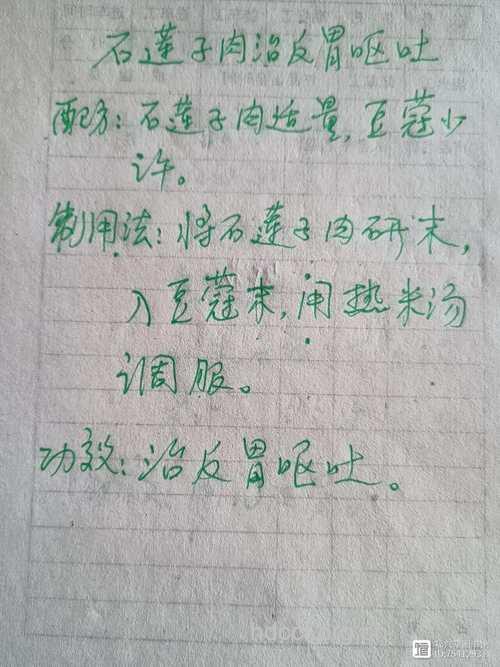 石莲子肉治反胃呕吐
配方:石莲子肉适量,豆蔻少
许。
制用法:将石莲子肉研末,
入豆蔻末,用热米汤
调服。
功效:治反胃呕吐。